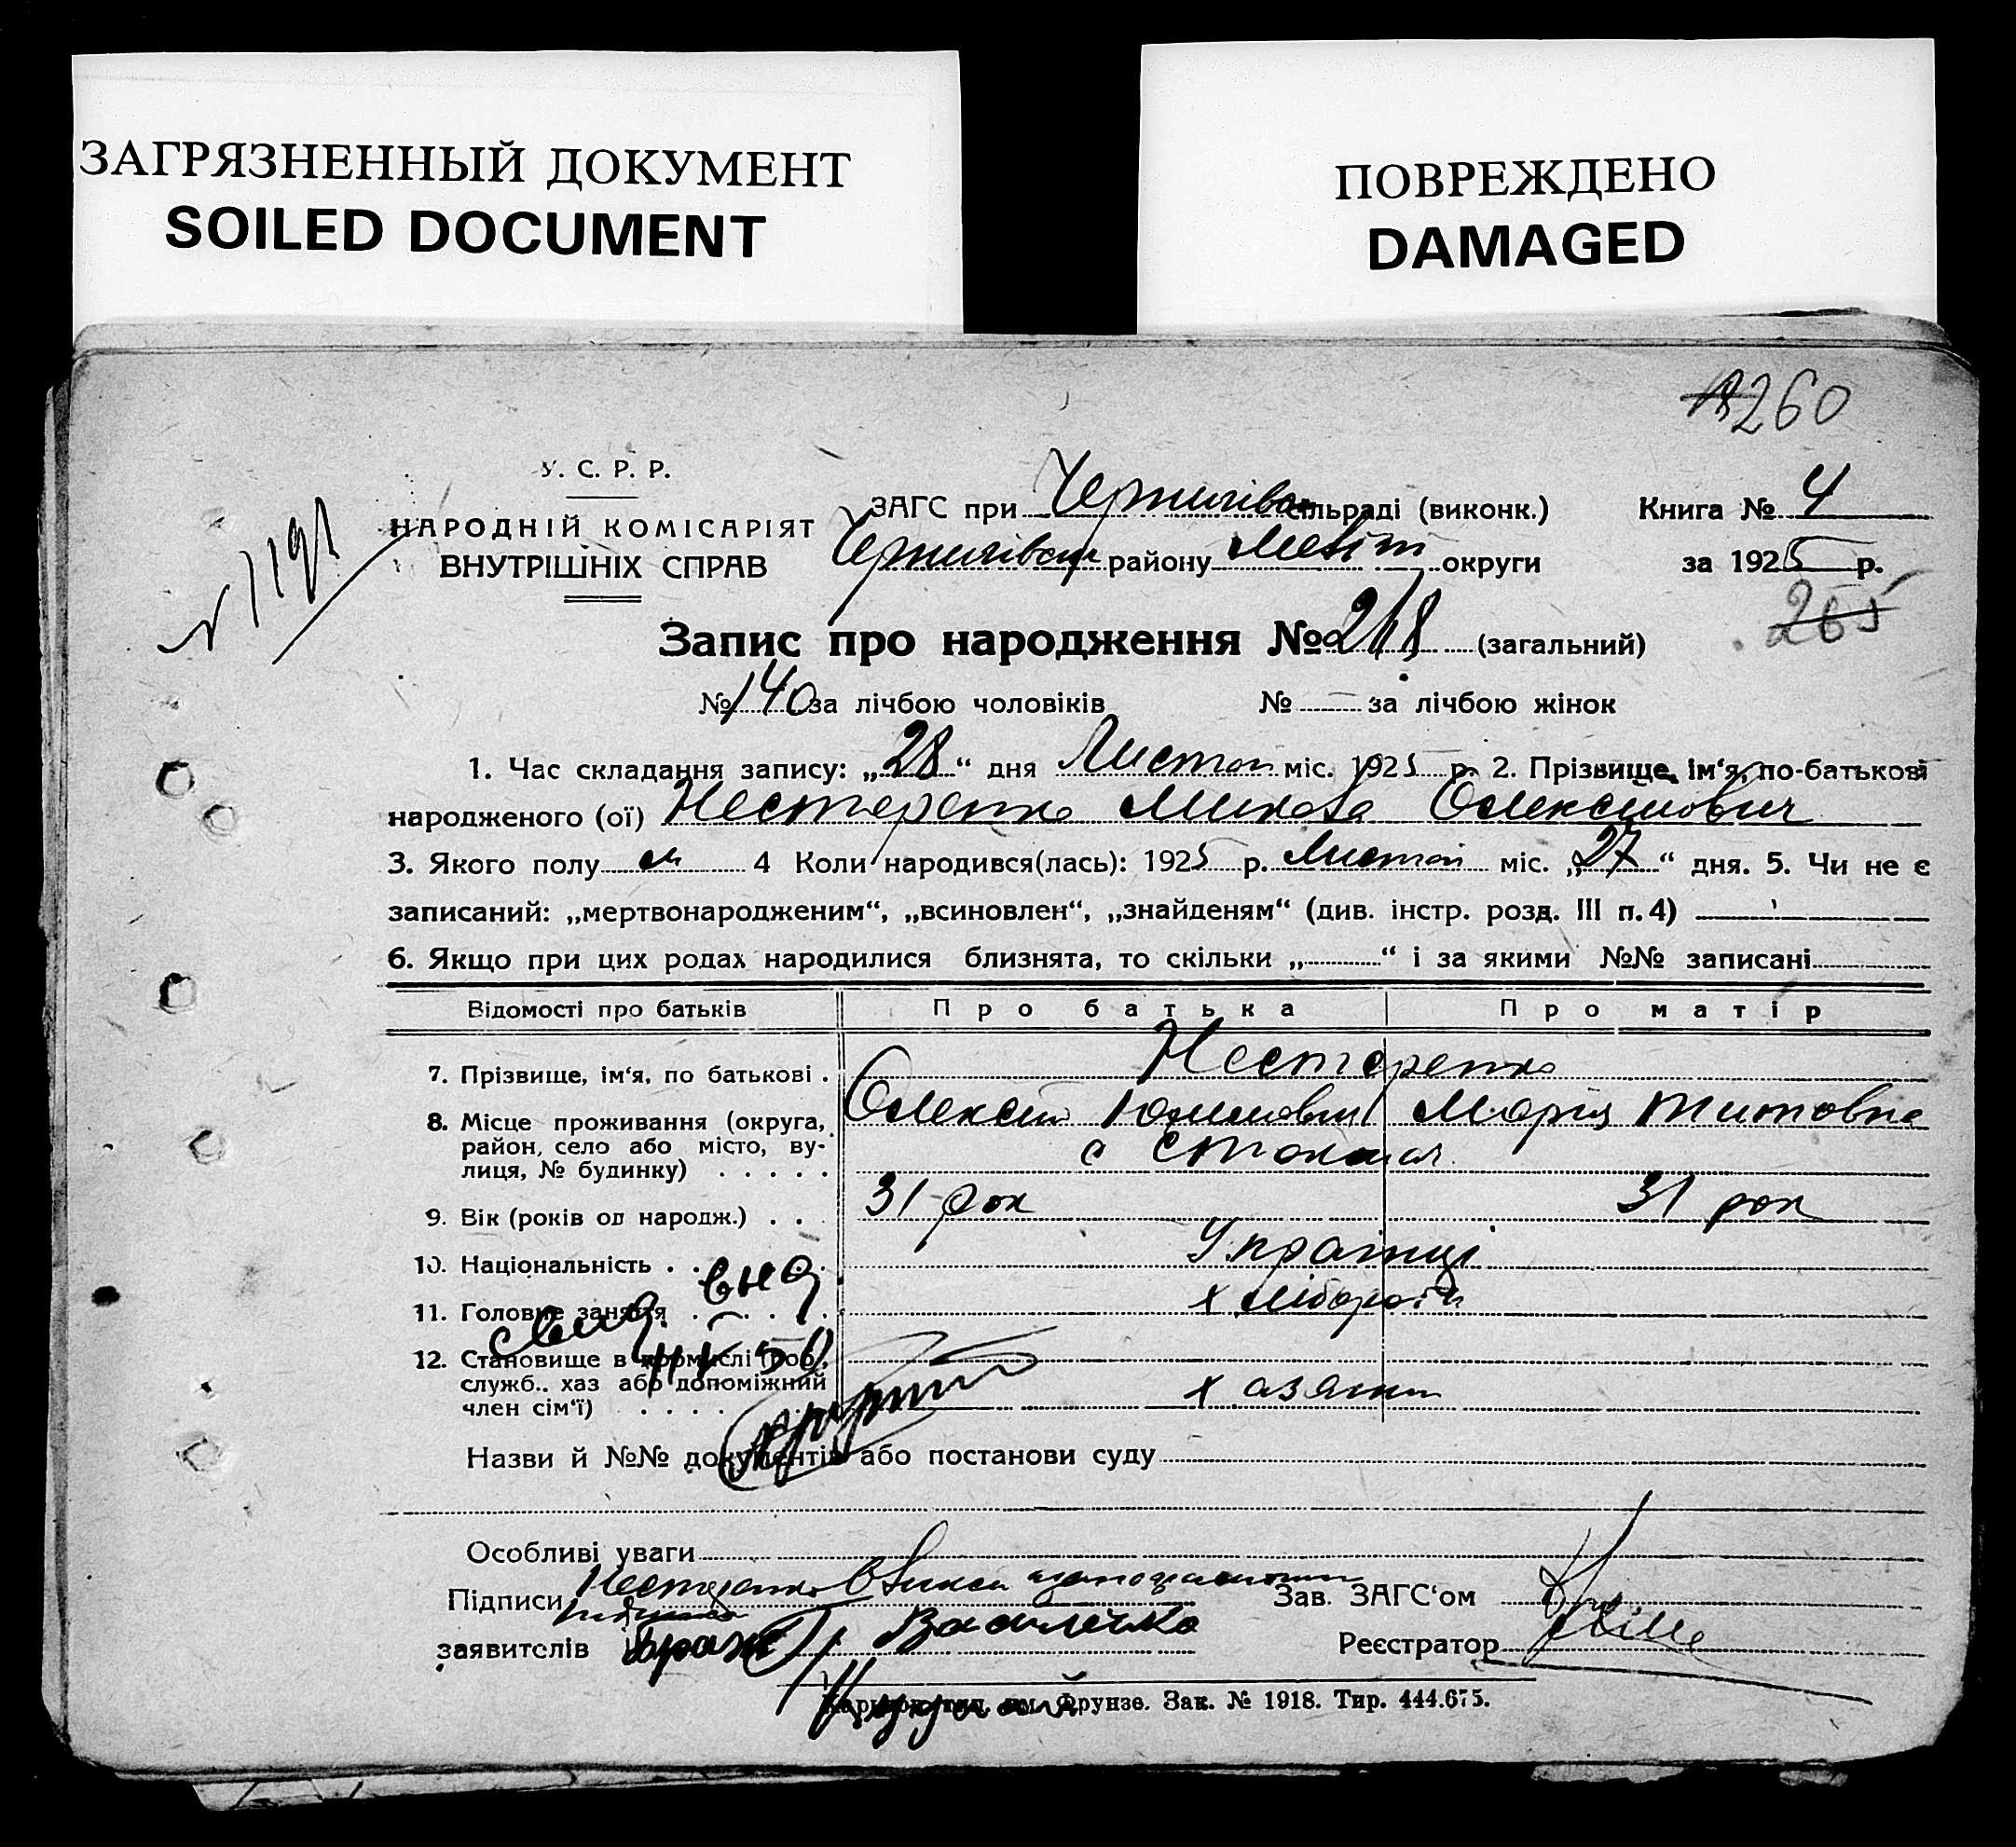 ЗАГРЯЗНЕННЫЙ ДОКУМЕНТ
SOILED DOCUMENT
ПОВРЕЖДЕНО
DAMAGED
260
У. С. Р. Р.
НАРОДНІЙ КОМІСАРІЯТ
ВНУТРІШНІХ СПРАВ
ЗАГС при сільраді (виконк.)
району округи
Книга № 4
за 1925 р.
265
Запис про народження № 268 (загальний)
№ 140 за лічбою чоловіків № — за лічбою жінок
1. Час складання запису: „28“ дня Листоп міс. 1925 р. 2. Прізвище, ім‘я, по-батькові
народженого (ої) Нестеренко Микола Олексійович
3. Якого полу м 4 Коли народився(лась): 1925 р. Листоп міс. „27“ дня. 5. Чи не є
записаний: „мертвонародженим“, „всиновлен“, „знайденям“ (див. інстр. розд. III п. 4)
6. Якщо при цих родах народилися близнята, то скільки „ “ і за якими №№ записані
Відомості про батьків Про батька Про матір
7. Прізвище, ім‘я, по батькові . Нестеренко
Олексій Марія Титовна
8. Місце проживання (округа,
район, село або місто, ву-
лиця, № будинку) . . . . . с
9. Вік (років од народж.) . . 31 рок 31 рок
10. Національність . . Українці
11. Головне заняття . . хлібороби
12. Становище в промислі (роб.,
служб.. хаз або допоміжний
член сім‘ї) . . . . хазяини
Назви й №№ документів або постанови суду
Особливі уваги
Підписи Нестеренко
заявителів Василенко
Зав. ЗАГС‘ом
Реєстратор
Фрунзе. Зак. № 1918. Тир. 444.675.